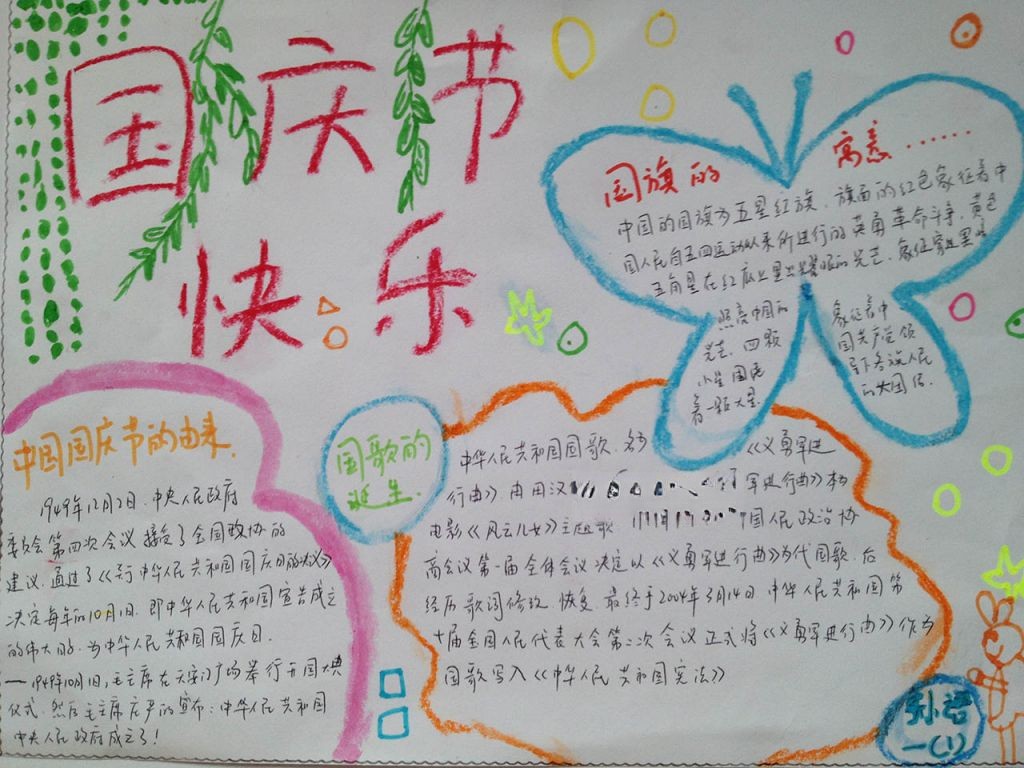 国庆节
快乐
国旗的 寓意……
中国的国旗为五星红旗，旗面的红色象征着中
国人民自五四运动以来所进行的英勇革命斗争，黄色
五角星在红底上显出耀眼的光芒，象征
照亮中国的
光芒，四颗
小星围绕
着一颗大星
象征着中
国共产党领
导下各族人民
的大团结.
中国国庆节的由来.
1949年12月2日，中央人民政府
委员会第四次会议接受了全国政协的
建议，通过了《关于中华人民共和国国庆日的决议》
决定每年的10月1日，即中华人民共和国宣告成立
的伟大日，为中华人民共和国国庆日.
一1949年10月1日，毛主席在天安门广场举行开国大典
仪式，然后毛主席庄严的宣布：中华人民共和国
中央人民政府成立了！
国歌的
诞生.
中华人民共和国国歌，名为《义勇军进
行曲》，由田汉 军进行曲》本为
电影《风云儿女》主题歌 国人民政治协
商会议第一届全体会议决定以《义勇军进行曲》为代国歌，后
经历歌词修改、恢复，最终于2004年3月14日，中华人民共和国第
十届全国人民代表大会第二次会议正式将《义勇军进行曲》作为
国歌写入《中华人民共和国宪法》
外语
一(1)